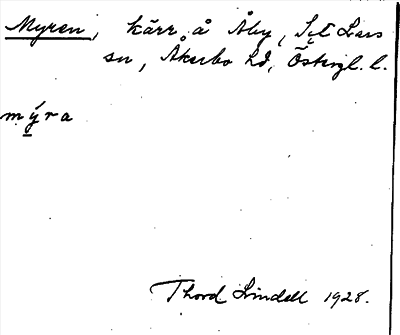 Myren, kärr å Åby, S:t Lars
sn, Åkerbo hd, Östergl. l.
mýra
Thord Lindell 1928.